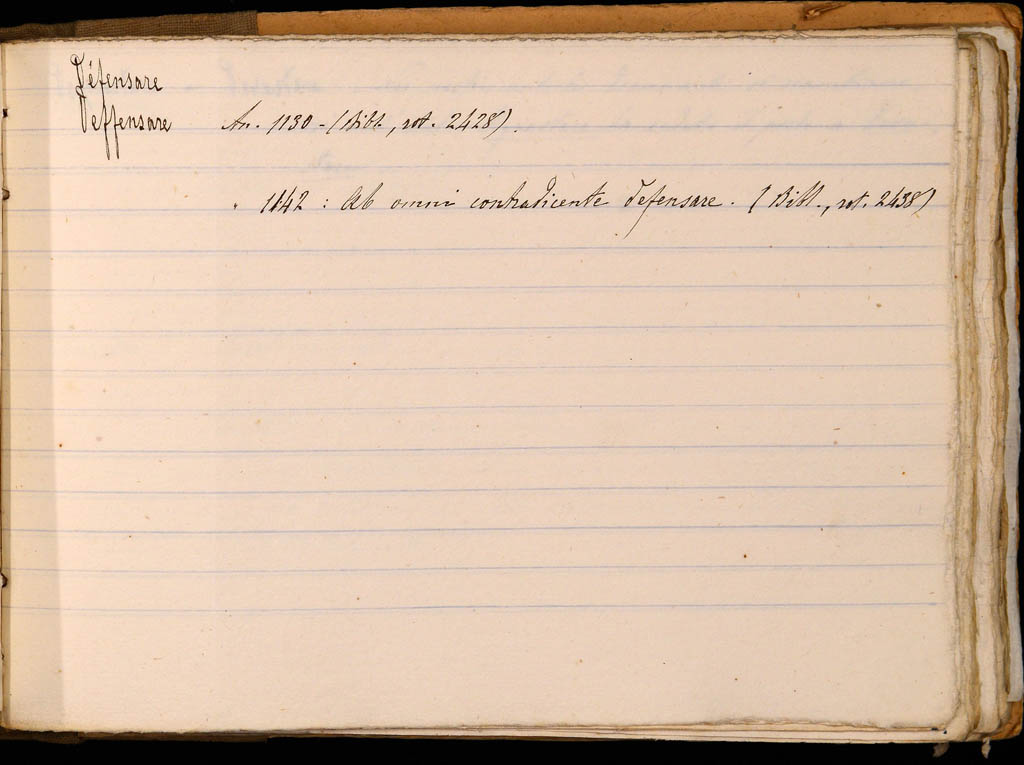 Défensare
Deffensare An. 1130 - (Bibl., rot. 2428).
" 1142 : Ab omni contradicente defensare. (Bibl., rot. 2438)